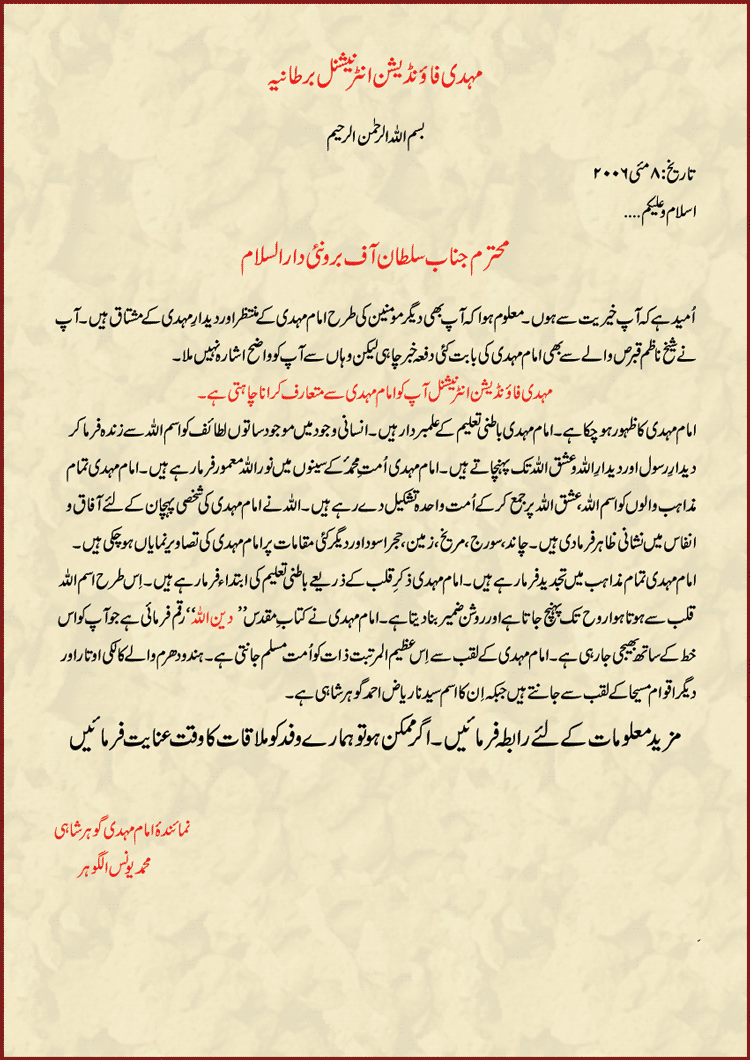 مہدی فاؤنڈیشن انٹرنیشنل برطانیہ
بسم اللہ الرحمٰن الرحیم
تاریخ: ۸ مئی ۲۰۰۶
اسلام و علیکم....
محترم جناب سلطان آف برونئی دارالسلام
اُمید ہے کہ آپ خیریت سے ہوں۔ معلوم ہوا کہ آپ بھی دیگر مؤمنین کی طرح امام مہدی کے منتظر اور دیدارِ مہدی کے مشتاق ہیں۔ آپ
نے شیخ ناظم قبرص والے سے بھی امام مہدی کی بابت کئی دفعہ خبر چاہی لیکن وہاں سے آپ کو واضح اشارہ نہیں ملا۔
مہدی فاؤنڈیشن انٹرنیشنل آپ کو امام مہدی سے متعارف کرانا چاہتی ہے۔
امام مہدی کا ظہور ہو چکا ہے۔ امام مہدی باطنی تعلیم کے علمبردار ہیں۔ انسانی وجود میں موجود ساتوں لطائف کو اسم اللہ سے زندہ فرما کر
دیدارِ رسول اور دیدارِ اللہ و عشق اللہ تک پہنچاتے ہیں۔ امام مہدی اُمتِ محمدؐ کے سینوں میں نور اللہ معمور فرما رہے ہیں۔ امام مہدی تمام
مذاہب والوں کو اسم اللہ، عشق اللہ پر جمع کر کے اُمت واحدہ تشکیل دے رہے ہیں۔ اللہ نے امام مہدی کی شخصی پہچان کے لئے آفاق و
انفاس میں نشانی ظاہر فرما دی ہیں۔ چاند، سورج، مریخ، زمین، حجر اسود اور دیگر کئی مقامات پر امام مہدی کی تصاویر نمایاں ہو چکی ہیں۔
امام مہدی تمام مذاہب میں تجدید فرما رہے ہیں۔ امام مہدی ذکرِ قلب کے ذریعے باطنی تعلیم کی ابتداء فرما رہے ہیں۔ اِس طرح اسم اللہ
قلب سے ہوتا ہوا روح تک پہنچ جاتا ہے اور روشن ضمیر بنا دیتا ہے۔ امام مہدی نے کتابِ مقدس ’’دین اللہ‘‘ رقم فرمائی ہے جو آپ کو اس
خط کے ساتھ بھیجی جا رہی ہے۔ امام مہدی کے لقب سے اِس عظیم المرتبت ذات کو اُمت مسلم جانتی ہے۔ ہندو دھرم والے کالکی اوتار اور
دیگر اقوام مسیحا کے لقب سے جانتے ہیں جبکہ اِن کا اسم سیدنا ریاض احمد گوہر شاہی ہے۔
مزید معلومات کے لئے رابطہ فرمائیں۔ اگر ممکن ہو تو ہمارے وفد کو ملاقات کا وقت عنایت فرمائیں
نمائندۂ امام مہدی گوہر شاہی
محمد یونس الگوہر